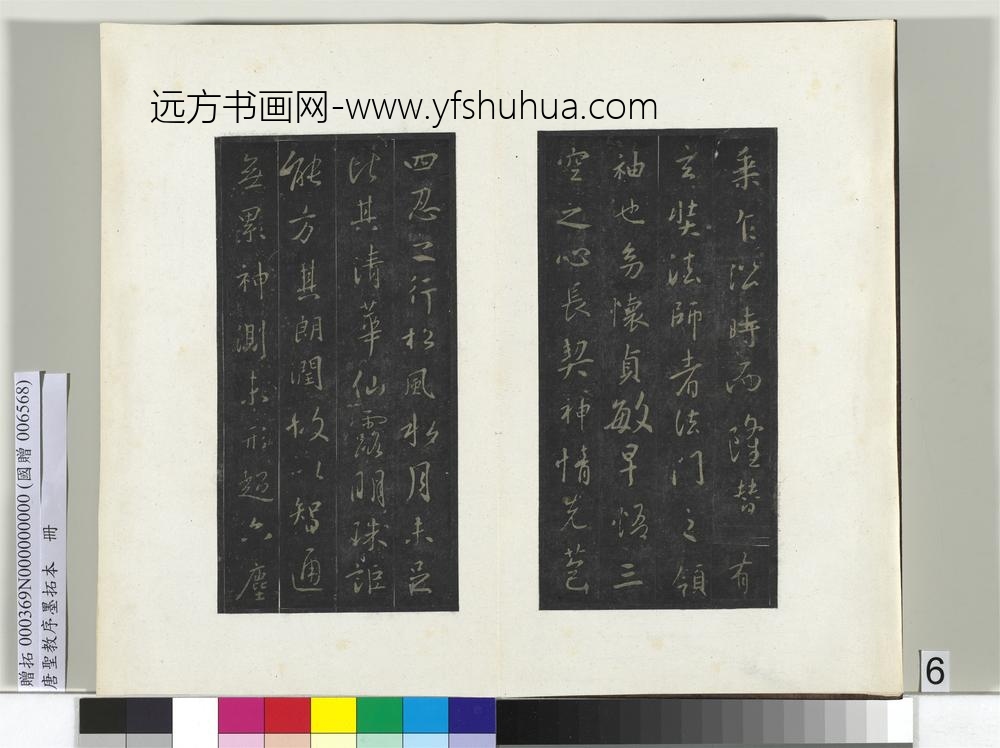 远方书画网-www.yfshuhua.com
乘乍沿時而隆替有
玄奘法師者法門之領
袖也幼懷貞敏早悟三
空之心長契神情先苞
四忍之行松風水月未足
比其清華仙露明珠詎
能方其朗潤故以智通
無累神測未形超六塵
贈拓 000369N000000000 (國贈 006568)
唐聖教序墨拓本 冊
6